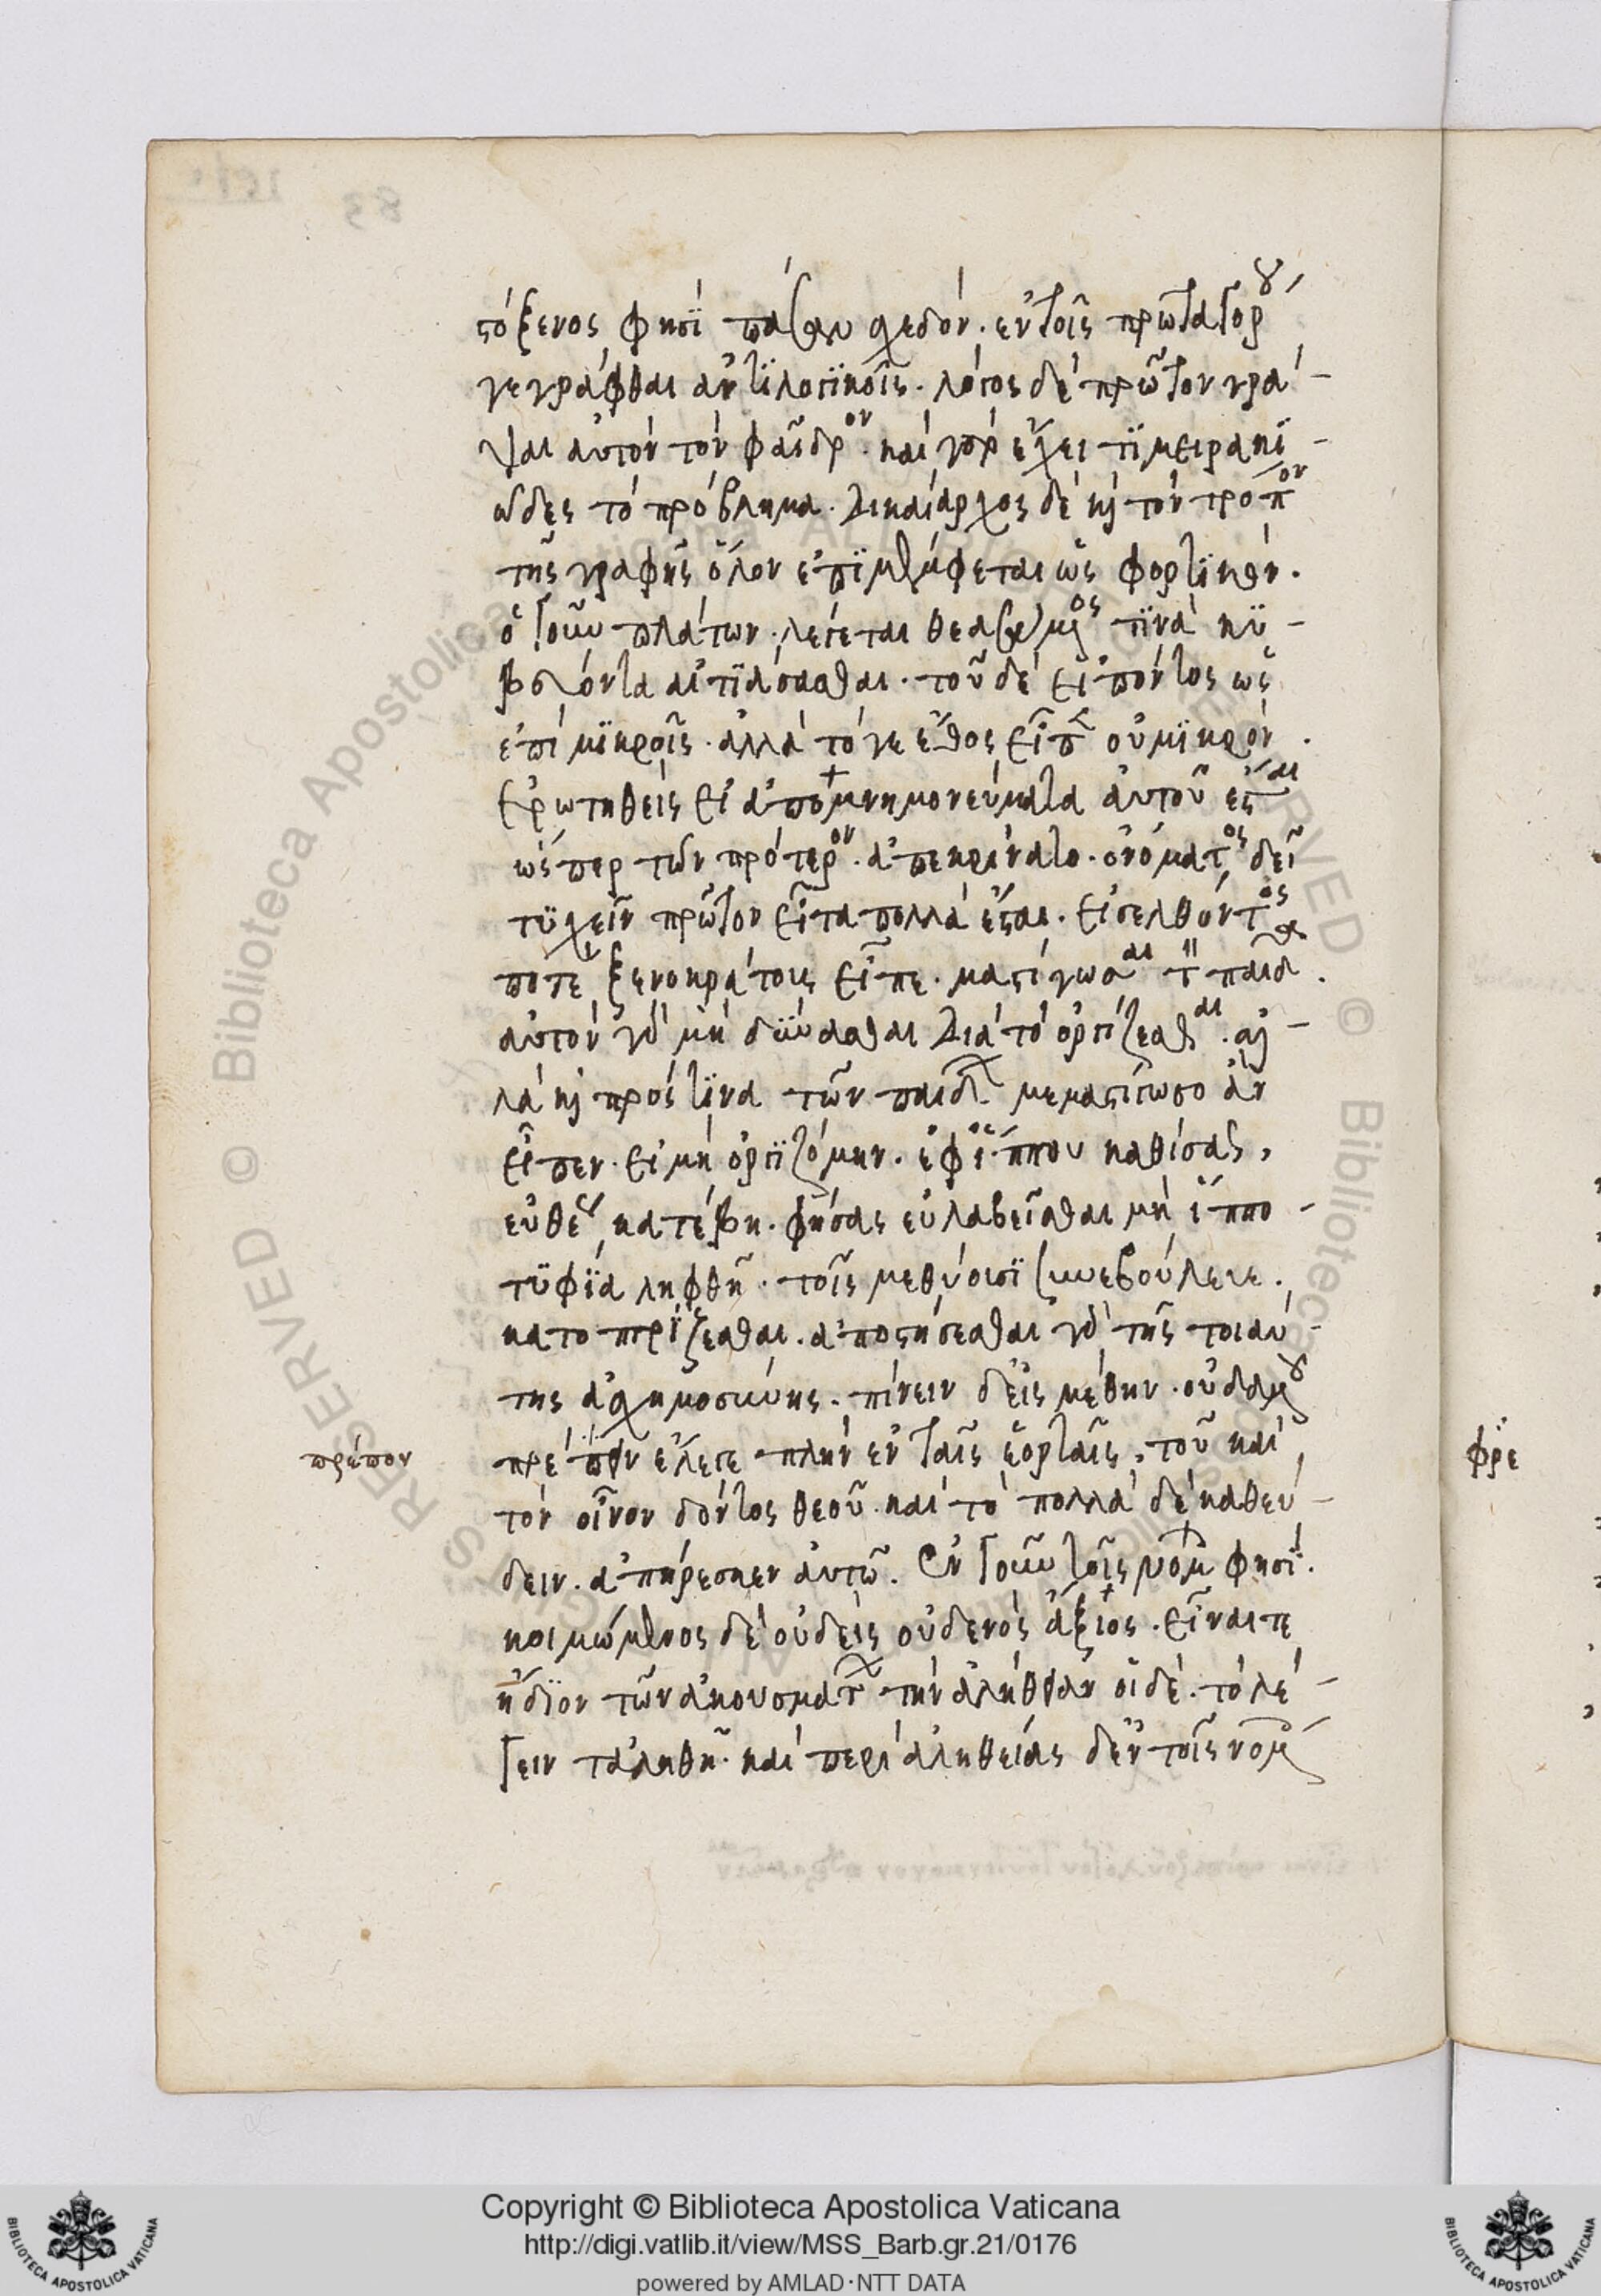 στόξενος φησὶ πᾶσαν σχεδόν. ἐν τοῖς πρωταγόρου
γεγράφθαι ἀντιλογικοῖς. λόγος δὲ πρῶτον γρά-
ψαι αὐτὸν τὸν φαῖδρον. καὶ γὰρ ἔχει τι μειρακι-
ῶδες τὸ πρόβλημα. Δικαίαρχος δὲ καὶ τὸν τρόπον
τῆς γραφῆς ὅλον ἐπιμέμφεται ὡς φορτικόν.
ὁ γοῦν πλάτων λέγεται θεασάμενος τινὰ κυ-
βεύοντα αἰτιάσασθαι. τοῦ δὲ εἰπόντος ὡς
ἐπὶ μικροῖς. ἀλλὰ τό γε ἔθος εἶπεν οὐ μικρόν.
ἐρωτηθεὶς εἰ ἀπομνημονεύματα αὐτοῦ ἔσται
ὥσπερ τῶν πρότερον. ἀπεκρίνατο. ὀνόματος δεῖ
τυχεῖν πρῶτον εἶτα πολλὰ ἔσται. εἰσελθόντος
ποτὲ ξενοκράτους εἶπε. μαστίγωσαι τὸν παῖδα.
αὐτὸν γὰρ μὴ δύνασθαι Διὰ τὸ ὀργίζεσθαι. ἀλ-
λὰ καὶ πρός τινα τῶν παίδων μεμαστίγωσο ἂν
εἶπεν. εἰ μὴ ὀργιζόμην. ἐφ' ἵππου καθίσας,
εὐθέως κατέβη. φήσας εὐλαβεῖσθαι μὴ ἱππο-
τυφίᾳ ληφθῇ. τοῖς μεθύουσι συνεβούλευε.
κατοπτρίζεσθαι. ἀποστήσεσθαι γὰρ τῆς τοιαύ-
της ἀσχημοσύνης. πίνειν δ' εἰς μέθην. οὐδαμοῦ
πρέπον ἔλεγε πλὴν ἐν ταῖς ἑορταῖς, τοῦ καὶ
πρέπον
τὸν οἶνον δόντος θεοῦ. καὶ τὸ πολλὰ δὲ καθεύ-
δειν. ἀπήρεσκεν αὐτῷ. ἐν γοῦν τοῖς νόμοις φησί.
κοιμώμενος δὲ οὐδεὶς οὐδενὸς ἄξιος. εἶναί τε
ἥδιον τῶν ἀκουσμάτων τὴν ἀλήθειαν οἱ δὲ. τὸ λέ-
γειν τἀληθῆ. καὶ περὶ ἀληθείας δ' ἐν τοῖς νόμοις
Copyright © Biblioteca Apostolica Vaticana
http://digi.vatlib.it/view/MSS_Barb.gr.21/0176
powered by AMLAD·NTT DATA